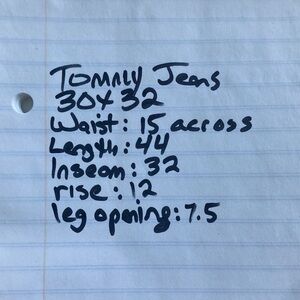 Tommy Jeans
30x32
Waist: 15 across
Length: 44
Inseam: 32
rise: 12
leg opening: 7.5